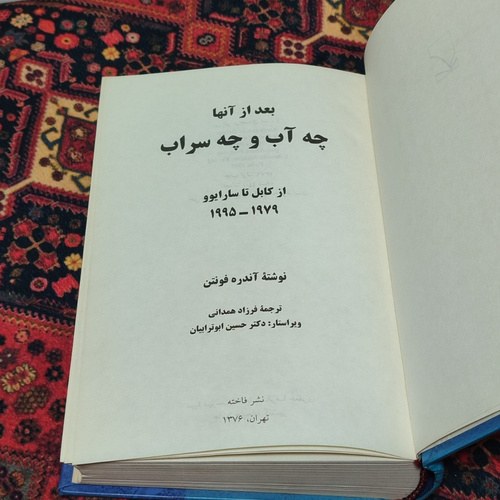 بعد از آنها
چه آب و چه سراب
از کابل تا سارایوو
۱۹۷۹ ــ ۱۹۹۵
نوشتهٔ آندره فونتن
ترجمهٔ فرزاد همدانی
ویراستار: دکتر حسین ابوترابیان
نشر فاخته
تهران، ۱۳۷۶